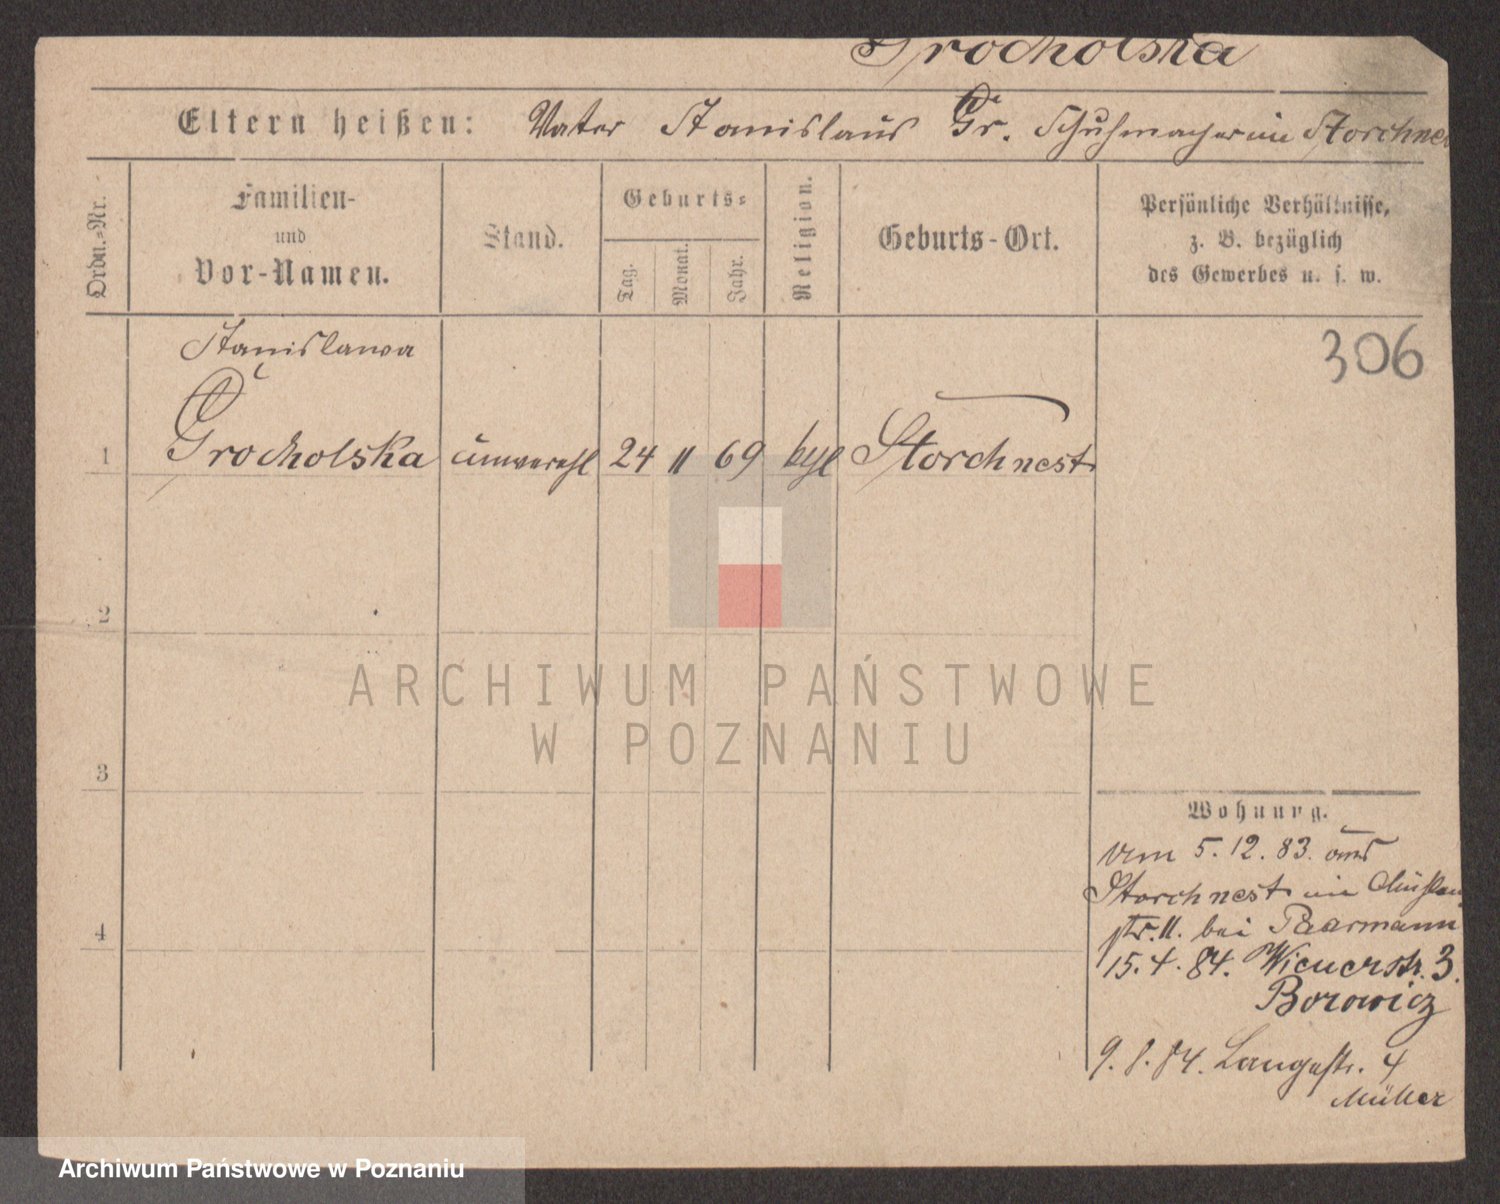 Grocholska
Eltern heißen: Vater Stanislaus Gr. Schuhmacher in Storchnest
Ordn.-Nr.
Familien-
und
Vor-Namen.
Stand.
Geburts-
Tag.
Monat.
Jahr.
Religion.
Geburts-Ort.
Persönliche Verhältnisse,
z. B. bezüglich
des Gewerbes u. s. w.
306
Stanislawa
1 Grocholska unverehl 24 11 69 Storchnest
2
3
4
ARCHIWUM PAŃSTWOWE
W POZNANIU
Wohnung.
vom 5.12.83. aus
Storchnest in
str. 11. bei Paarmann
15.4.84. Wienerstr. 3.
Borowicz
9.8.84. Langestr. 4
Müller
Archiwum Państwowe w Poznaniu